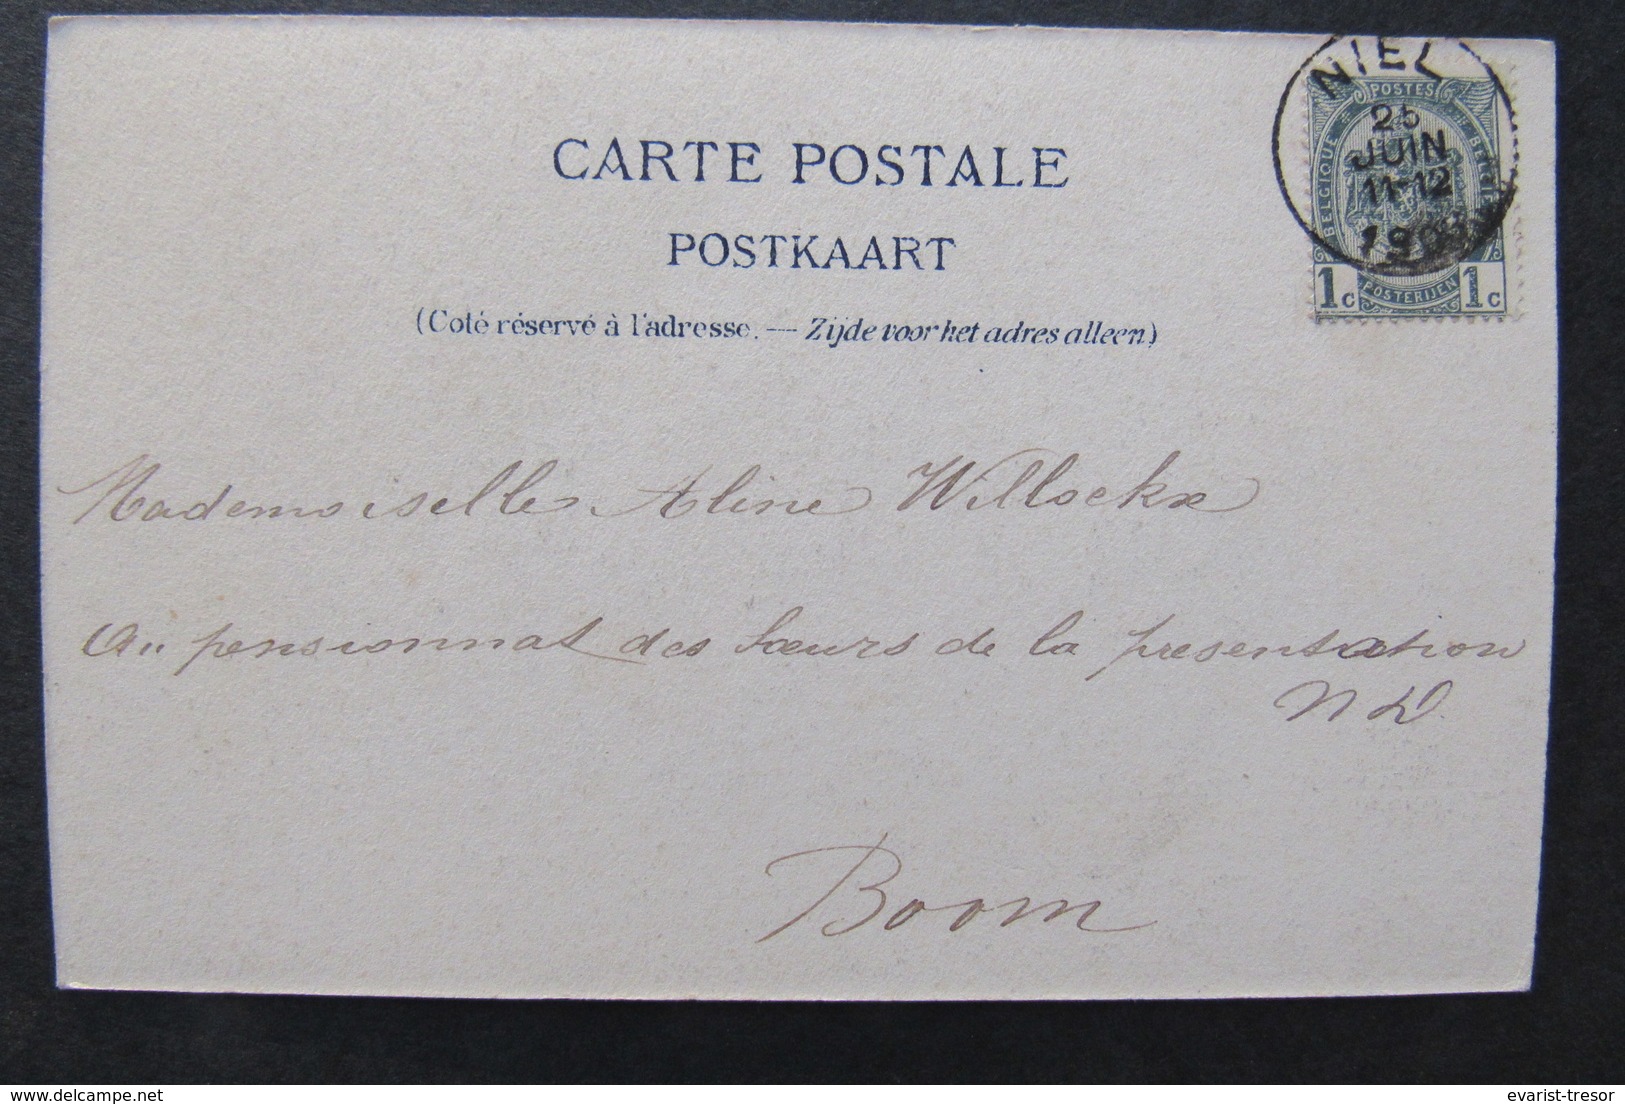 NIEL
25
JUIN
11-12
POSTES
BELGIQUE
POSTERIJEN
1c 1c
CARTE POSTALE
POSTKAART
(Coté réservé à l'adresse. — Zijde voor het adres alleen)
Mademoiselle Aline Willockx
Au pensionnat des Sœurs de la presentation
N D.
Boom
delcampe.net
evarist-tresor